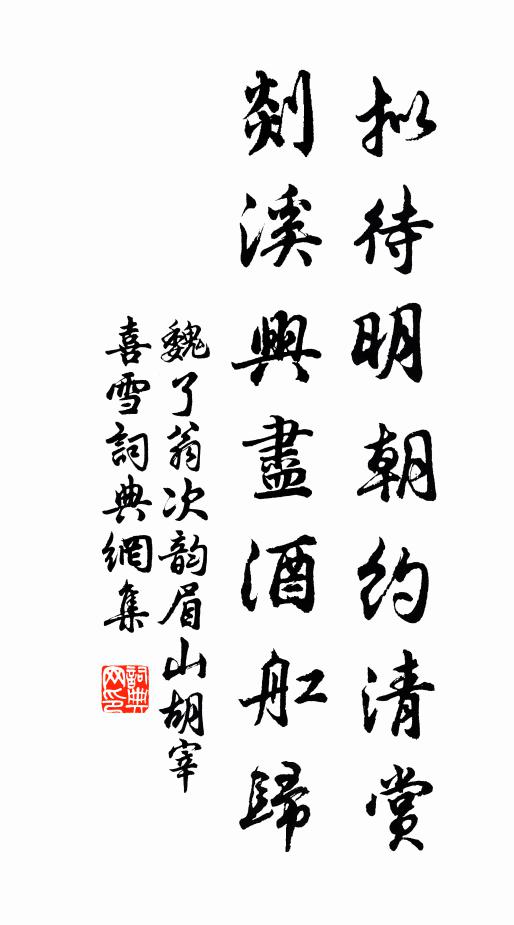 拟待明朝約清賞
剡溪興盡酒舡歸
魏了翁次韵眉山胡宰
喜雪詞典網集
詞典网印